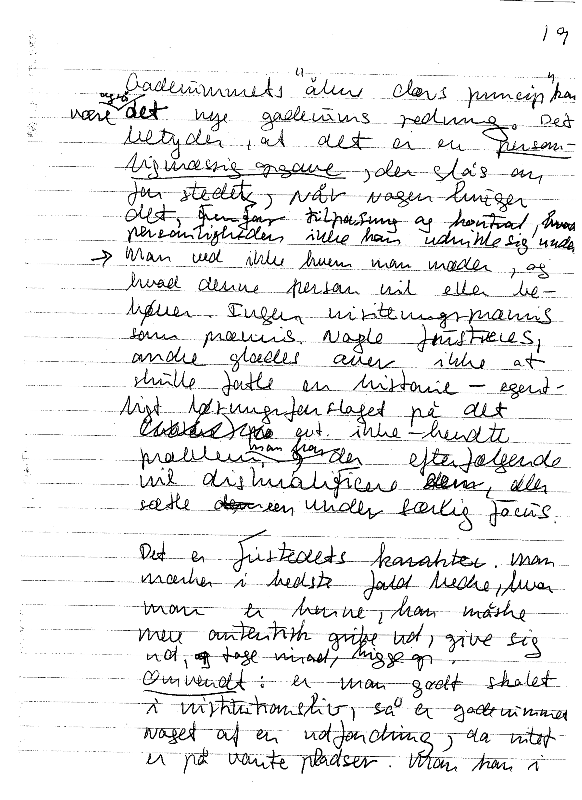 19
Gaderummets "åben dørs princip" kan
også
være det nye gaderums redning. Det
betyder, at det er en person-
ligmæssig opgave, der slås an
for stedet, når nogen bringer
det, tilpasning og kontrol, hvad
personligheden ikke kan udvikle sig under
→ Man ved ikke hvem man møder, og
hvad denne person vil eller be-
høver. Ingen visiteringspræmis
som præmis. Nogle frustreres,
andre glædes over ikke at
skulle fortælle en historie – egent-
ligt løsningsforslaget på det
evt. ikke-hændte
problem, man har der efterfølgende
vil diskvalificere dem, eller
sætte een under særlig focus.
Det er fristedets karakter. Man
mærker i bedste fald bedre, hvor
man er henne, kan måske
mere autentisk gribe ud, give sig
ud, og tage imod, bygge op.
Omvendt: er man godt skolet
i institutionsliv, så er gaderummet
noget af en udfordring, da intet
er på vante pladser. Man kan i